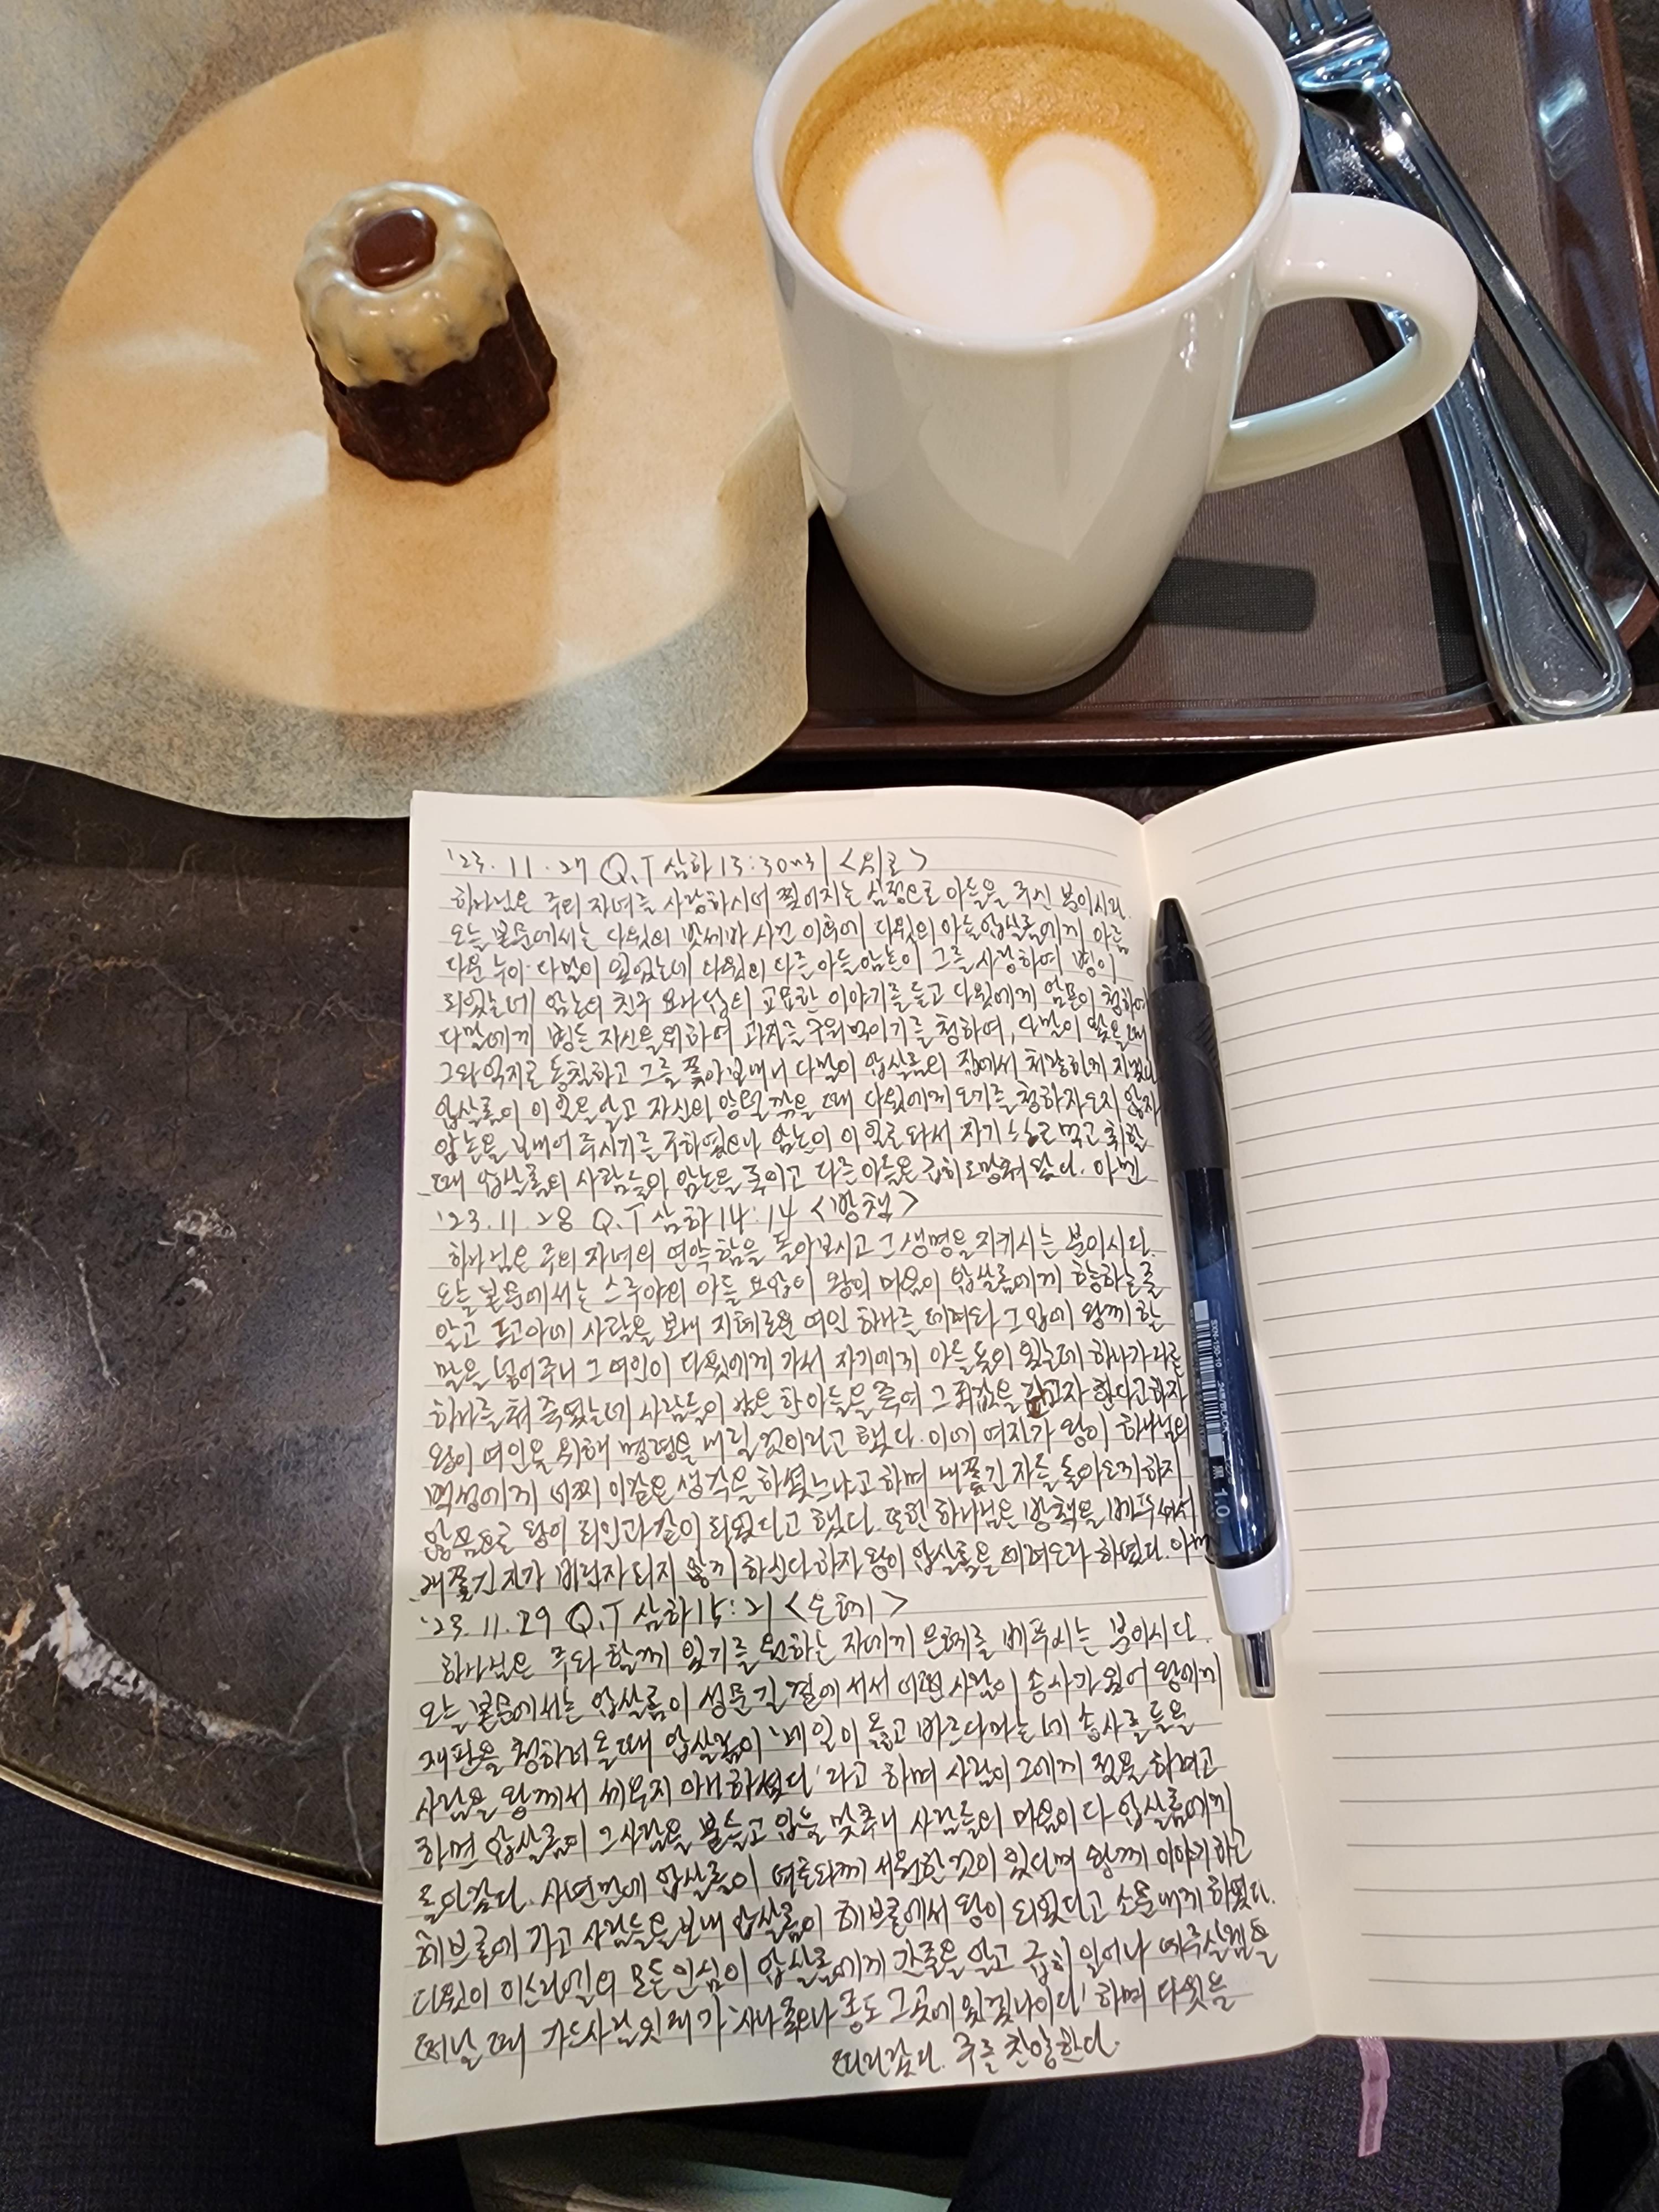 '23. 11. 27 Q.T 삼하 13:30 <위로>
하나님은 주의 자녀를 사랑하시며 찢어지는 심정으로 아들을 주신 분이시라.
오늘 본문에서는 다윗의 밧세바 사건 이후에 다윗의 아들 압살롬에게 아름
다운 누이 다말이 있었는데 다윗의 다른 아들 암논이 그를 사랑하여 병이
되었는데 암논의 친구 요나답의 교묘한 이야기를 듣고 다윗에게 암논이 청하여
다말에게 병든 자신을 위하여 과자를 구워 먹이기를 청하여, 다말이 왔을 때
그와 억지로 동침하고 그를 쫓아보내니 다말이 압살롬의 집에서 처량하게 지냈다
압살롬이 이 일을 알고 자신의 양털 깎을 때 다윗에게 오기를 청하자 오지 않자
암논을 보내어 주시기를 구하였으나 암논이 이 일로 와서 자기 먹고 취할
때 압살롬의 사람들이 암논을 죽이고 다른 아들은 급히 도망쳐 왔다. 아멘
'23. 11. 28 Q.T 삼하 14:14 <방책>
하나님은 주의 자녀의 연약함을 돌아보시고 그 생명을 지키시는 분이시다.
오늘 본문에서는 스루야의 아들 요압이 왕의 마음이 압살롬에게 향하는 줄
알고 드고아에 사람을 보내 지혜로운 여인 하나를 데려와 그 입에 왕께 할
말을 넣어주니 그 여인이 다윗에게 가서 자기에게 아들 둘이 있는데 하나가 다른
하나를 쳐 죽였는데 사람들이 남은 한 아들을 죽여 그 죄값을 갚고자 한다고 하자
왕이 여인을 위해 명령을 내릴 것이라고 했다. 이에 여자가 왕이 하나님의
백성에게 어찌 이같은 생각을 하셨느냐고 하며 내쫓긴 자를 돌아오게 하지
않음으로 왕이 죄인과 같이 되었다고 했다. 또한 하나님은 방책을 베푸셔서
내쫓긴 자가 버린 자 되지 않게 하신다 하자 왕이 압살롬을 데려오라 하였다. 아멘
'23. 11. 29 Q.T 삼하 15:21 <은혜>
하나님은 주와 함께 있기를 원하는 자에게 은혜를 베푸시는 분이시다.
오늘 본문에서는 압살롬이 성문 길 곁에 서서 어떤 사람이 송사가 있어 왕에게
재판을 청하러 올 때 압살롬이 '네 일이 옳고 바르다마는 네 송사를 들을
사람을 왕께서 세우지 아니하셨다' 라고 하며 사람이 그에게 절을 하려고
하면 압살롬이 그 사람을 붙들고 입을 맞추니 사람들의 마음이 다 압살롬에게
돌아갔다. 사년만에 압살롬이 여호와께 서원한 것이 있다며 왕께 이야기하고
헤브론에 가고 사람들을 보내 압살롬이 헤브론에서 왕이 되었다고 소문내게 하였다.
다윗이 이스라엘의 모든 인심이 압살롬에게 간 줄을 알고 급히 일어나 예루살렘을
떠날 때 가드 사람 잇대가 '사나 죽으나 종도 그곳에 있겠나이다' 하며 다윗을
따라갔다. 주를 찬양한다.
SXN-150-10
1.0